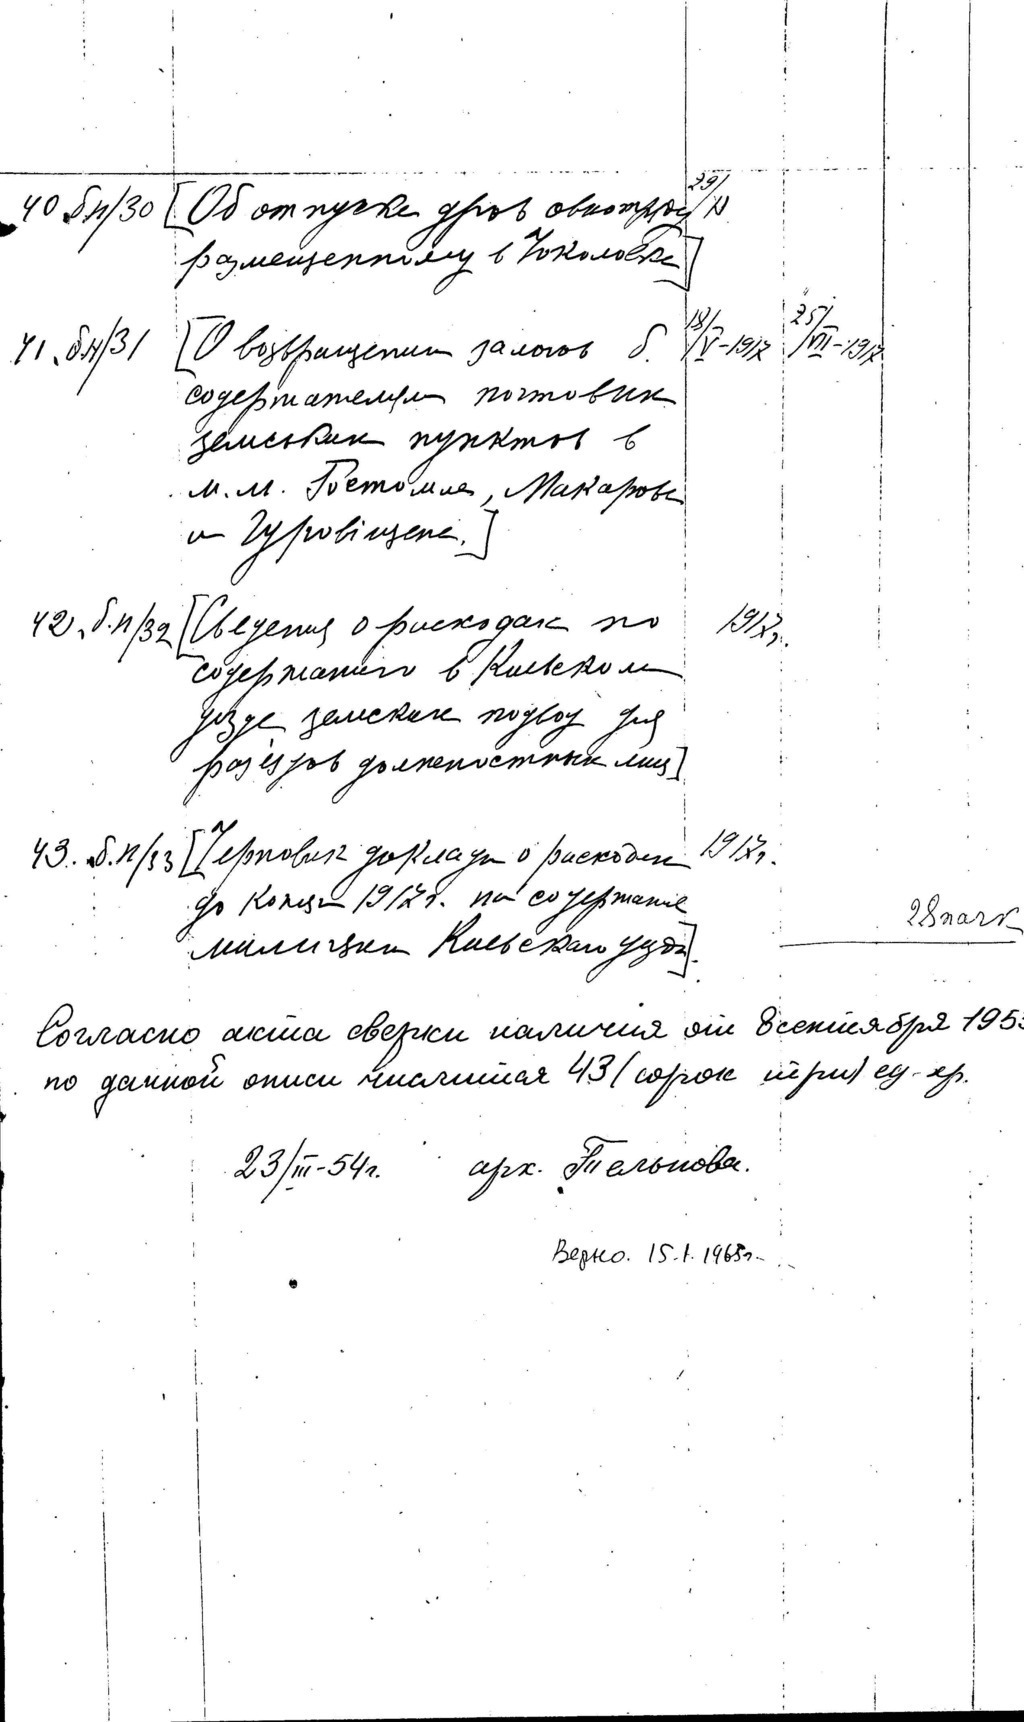 40 б.н/30 [Об отпуске дров авиотряду 29/
размещенному в Чоколовке]
41. б.н/31 [О возвращении залогов б. 18/V-1917 25/VII-1917
содержателям почтовых
земських пунктов в
м.м. Гостомле, Макарове
и Гуровщене.]
42. б.н/32 [Сведения о расходах по 1917г.
содержанию в Киевском
уезде земских подвод для
разъездов должностных лиц]
43. б.н/33 [Черновик доклада о расходах 1917г.
до конца 1917г. на содержание
милиции Киевскаго уезда].
28 пачк
Согласно акта сверки наличия от 8 сентября 1953
по данной описи числится 43 (сорок три) ед-хр.
23/III-54г. арх. Тельнова.
Верно. 15.1.1965г.